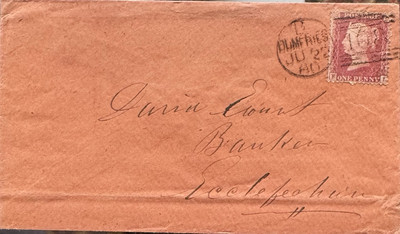 DUMFRIES
JU 22
60
ONE PENNY
David Court
Banker
Ecclefechan